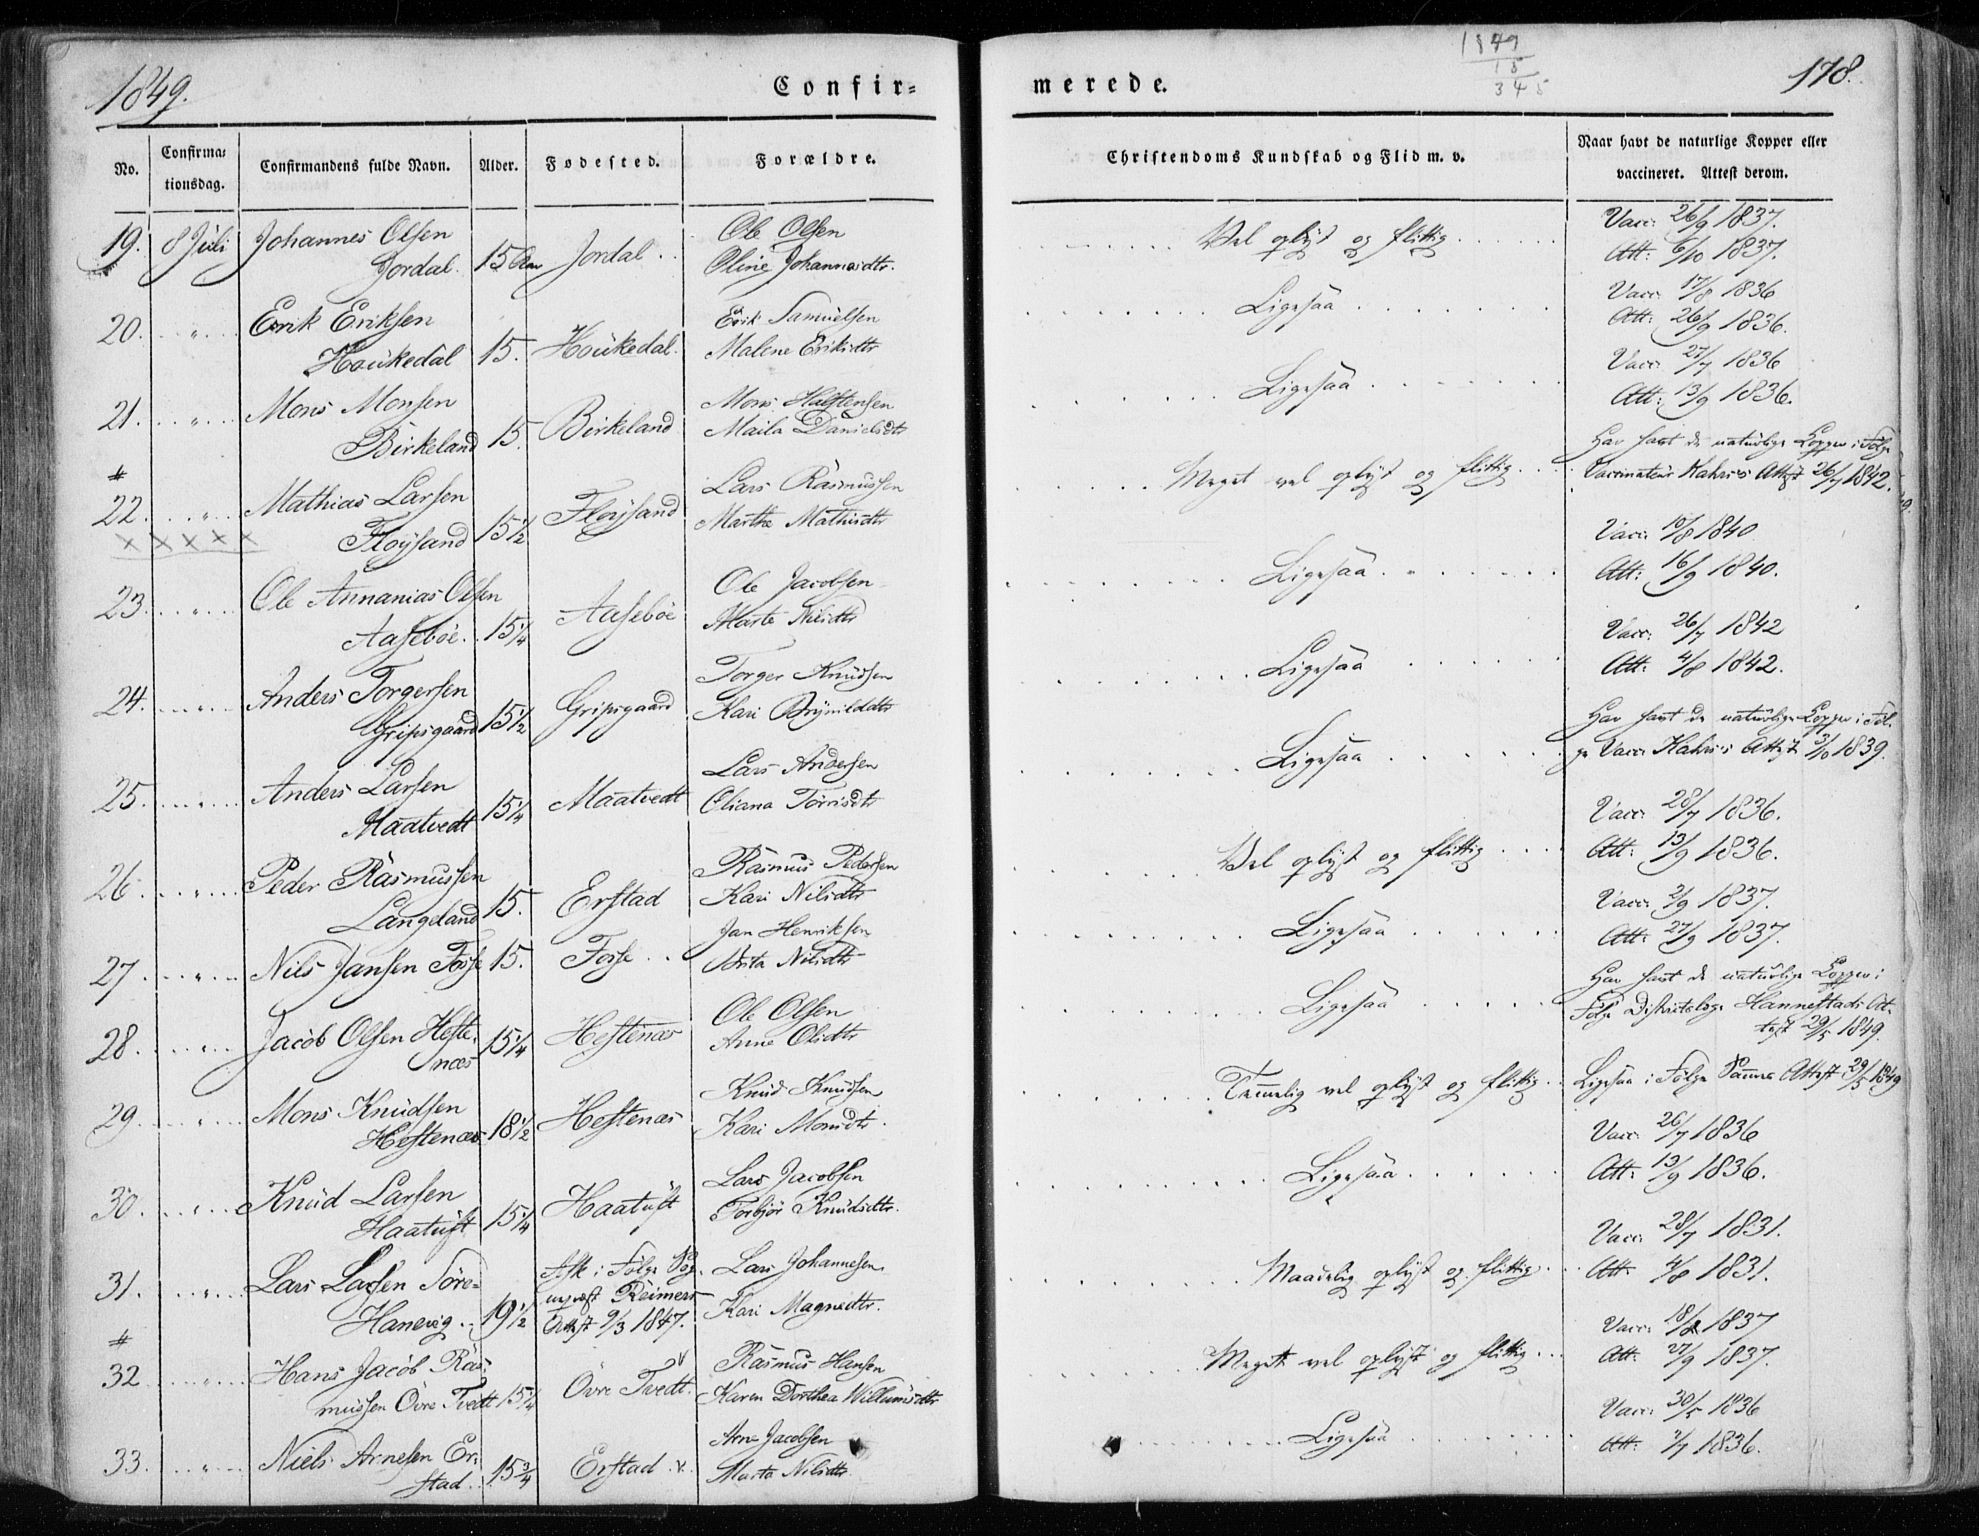 1849.
Confir=
merede.
1849
15
345
178.
No.
Confirma=
tionsdag.
Confirmandens fulde Navn.
Alder.
Fødested.
Forældre.
Christendoms Kundskab og Flid m. v.
Naar havt de naturlige Kopper eller
vaccineret. Attest derom.
19. 8 Juli Johannes Olsen
Jordal. 15 Aar Jordal.
Ole Olsen
Oline Johannesdtr.
Vel oplyst og flittig
Vacc: 26/9 1837.
Att: 6/10 1837.
20. " Erik Eriksen
Houkedal 15. Houkedal.
Erik Samuelsen
Malene Eriksdtr
Ligesaa
Vacc: 17/8 1836
Att: 26/9 1836.
21. " Mons Monsen
Birkeland 15. Birkeland
Mons Halstensen
Maila Danielsdtr
Ligesaa
Vacc: 27/7 1836
Att: 13/9 1836.
#
22. " Mathias Larsen
Fløysand 15 1/2 Fløysand
Lars Rasmussen
Martha Mathisdtr
Meget vel oplyst og flittig
Har havt de naturlige Kopper i Følge
Vaccinateur Kahrs's Attest 26/7 1842.
23. " Ole Annanias Olsen
Aasebøe. 15 1/4 Aasebøe
Ole Jacobsen
Marte Nilsdtr
Ligesaa
Vacc: 10/8 1840
Att: 16/9 1840.
24. " Anders Torgersen
Gripsgaard 15 1/2 Gripsgaard
Torger Knudsen
Kari Brynildsdtr
Ligesaa
Vacc: 26/7 1842
Att: 4/8 1842.
25. " Anders Larsen
Maatvedt 15 1/4 Maatvedt
Lars Andersen
Oliana Torrisdtr
Ligesaa
Har havt de naturlige Kopper i Føl-
ge Vacc: Kahrs's Attest 3/10 1839.
26. " Peder Rasmussen
Langeland 15. Erstad
Rasmus Pedersen
Kari Nilsdtr
Vel oplyst og flittig
Vacc: 28/7 1836.
Att: 13/9 1836.
27. " Nils Jansen Fosse 15. Fosse
Jan Henriksen
Brita Nilsdtr
Ligesaa
Vacc: 2/9 1837.
Att: 27/9 1837.
28. " Jacob Olsen Hefte-
næs 15 1/4 Heftenæs
Ole Olsen
Anne Olsdtr
Ligesaa
Har havt de naturlige Kopper i
Følge Districtslæge Hannestads At-
test 29/5 1849.
29. " Mons Knudsen
Heftenæs 18 1/2 Heftenæs
Knud Knudsen
Kari Monsdtr.
Temmelig vel oplyst og flittig
Ligesaa i Følge Samme Attest 29/5 1849
30. " Knud Larsen
Haatuft 15 1/4 Haatuft
Lars Jacobsen
Torbjør Knudsdtr.
Ligesaa
Vacc: 26/7 1836
Att: 13/9 1836.
31. " Lars Larsen Søre-
Hanevig 19 1/2
Ask i Følge Sog-
nepræst Reimers
Attest 9/3 1847.
Lars Johannesen
Kari Magnedtr.
Maadelig oplyst og flittig
Vacc: 28/7 1831.
Att: 4/8 1831.
#
32 " Hans Jacob Ras-
mussen Övre Tvedt 15 1/4 Övre Tvedt.
Rasmus Hansen
Karen Dorthea Willumsdtr
Meget vel oplyst og flittig
Vacc: 18/8 1837
Att: 27/9 1837.
33. " Niels Arnesen Er-
stad. 15 3/4 Erstad
Arne Jacobsen
Marta Nilsdtr.
Ligesaa
Vacc: 30/5 1836
Att: 7/7 1836.